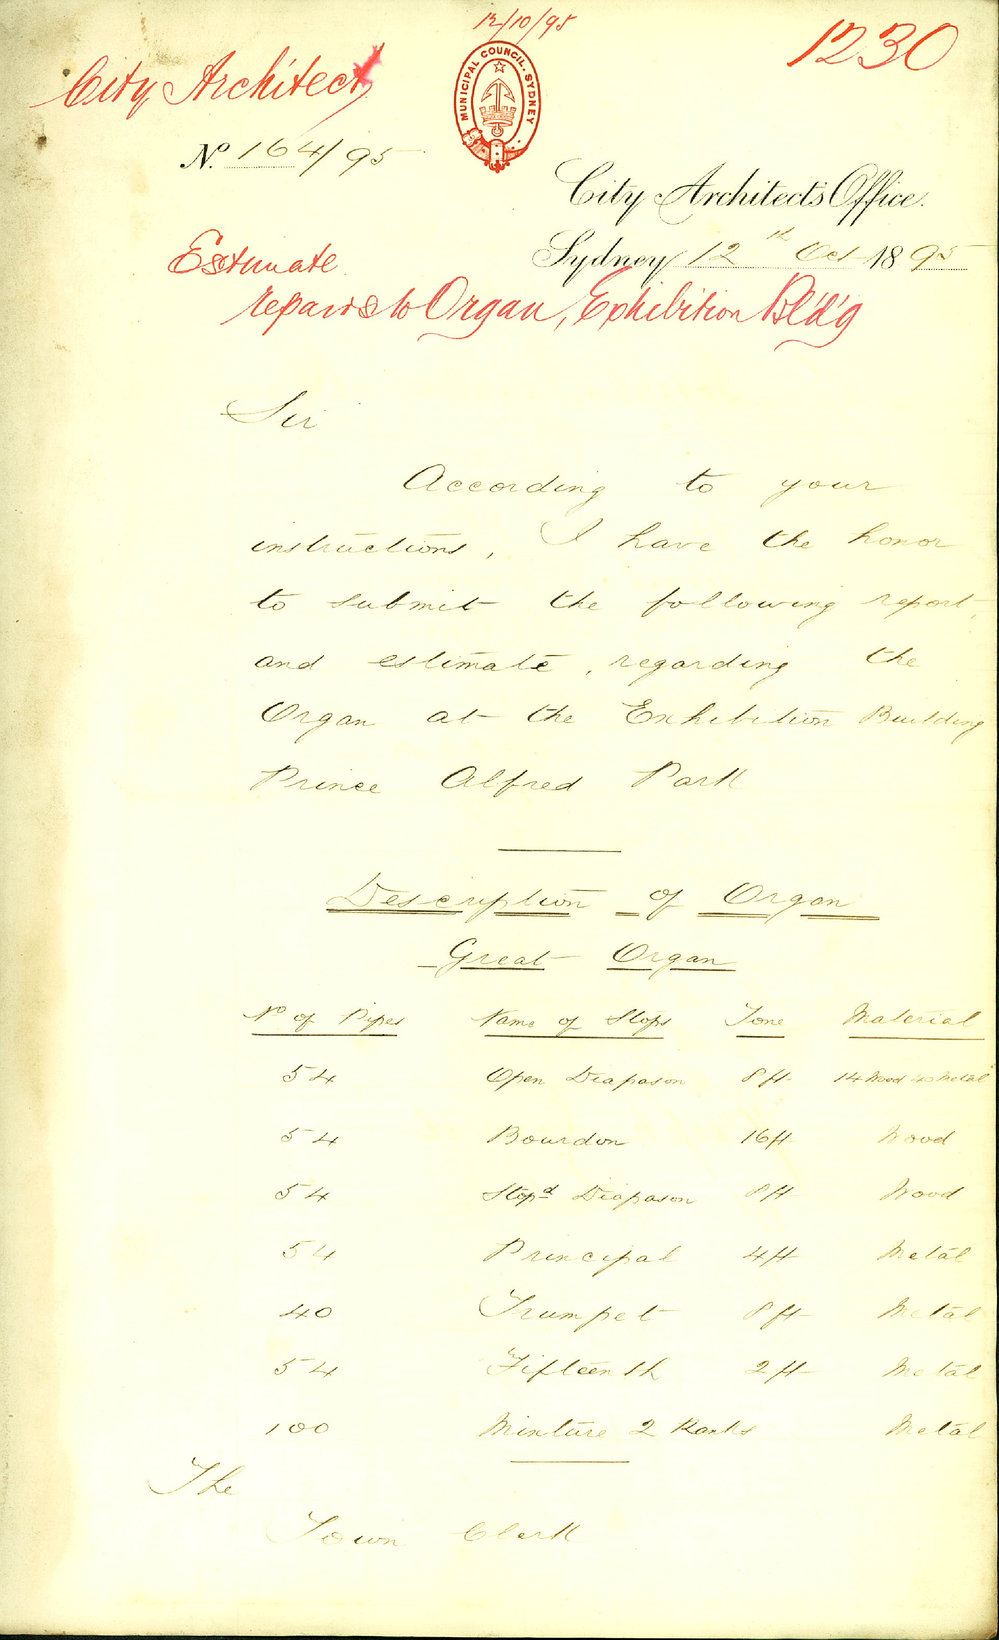 12/10/95
1230
City Architect
MUNICIPAL COUNCIL. SYDNEY
No. 164/95
City Architect's Office.
Sydney 12th Oct 1895
Estimate
repairs to Organ, Exhibition Bld'g
Sir
According to your
instructions, I have the honor
to submit the following report,
and estimate, regarding the
Organ at the Exhibition Building
Prince Alfred Park
Description of Organ
Great Organ
No of Pipes Name of Stops Tone Material
54 Open Diapason 8 ft 14 Wood 40 Metal
54 Bourdon 16 ft Wood
54 Stopd Diapason 8 ft Wood
54 Principal 4 ft Metal
40 Trumpet 8 ft Metal
54 Fifteenth 2 ft Metal
100 Mixture 2 Ranks Metal
The
Town Clerk